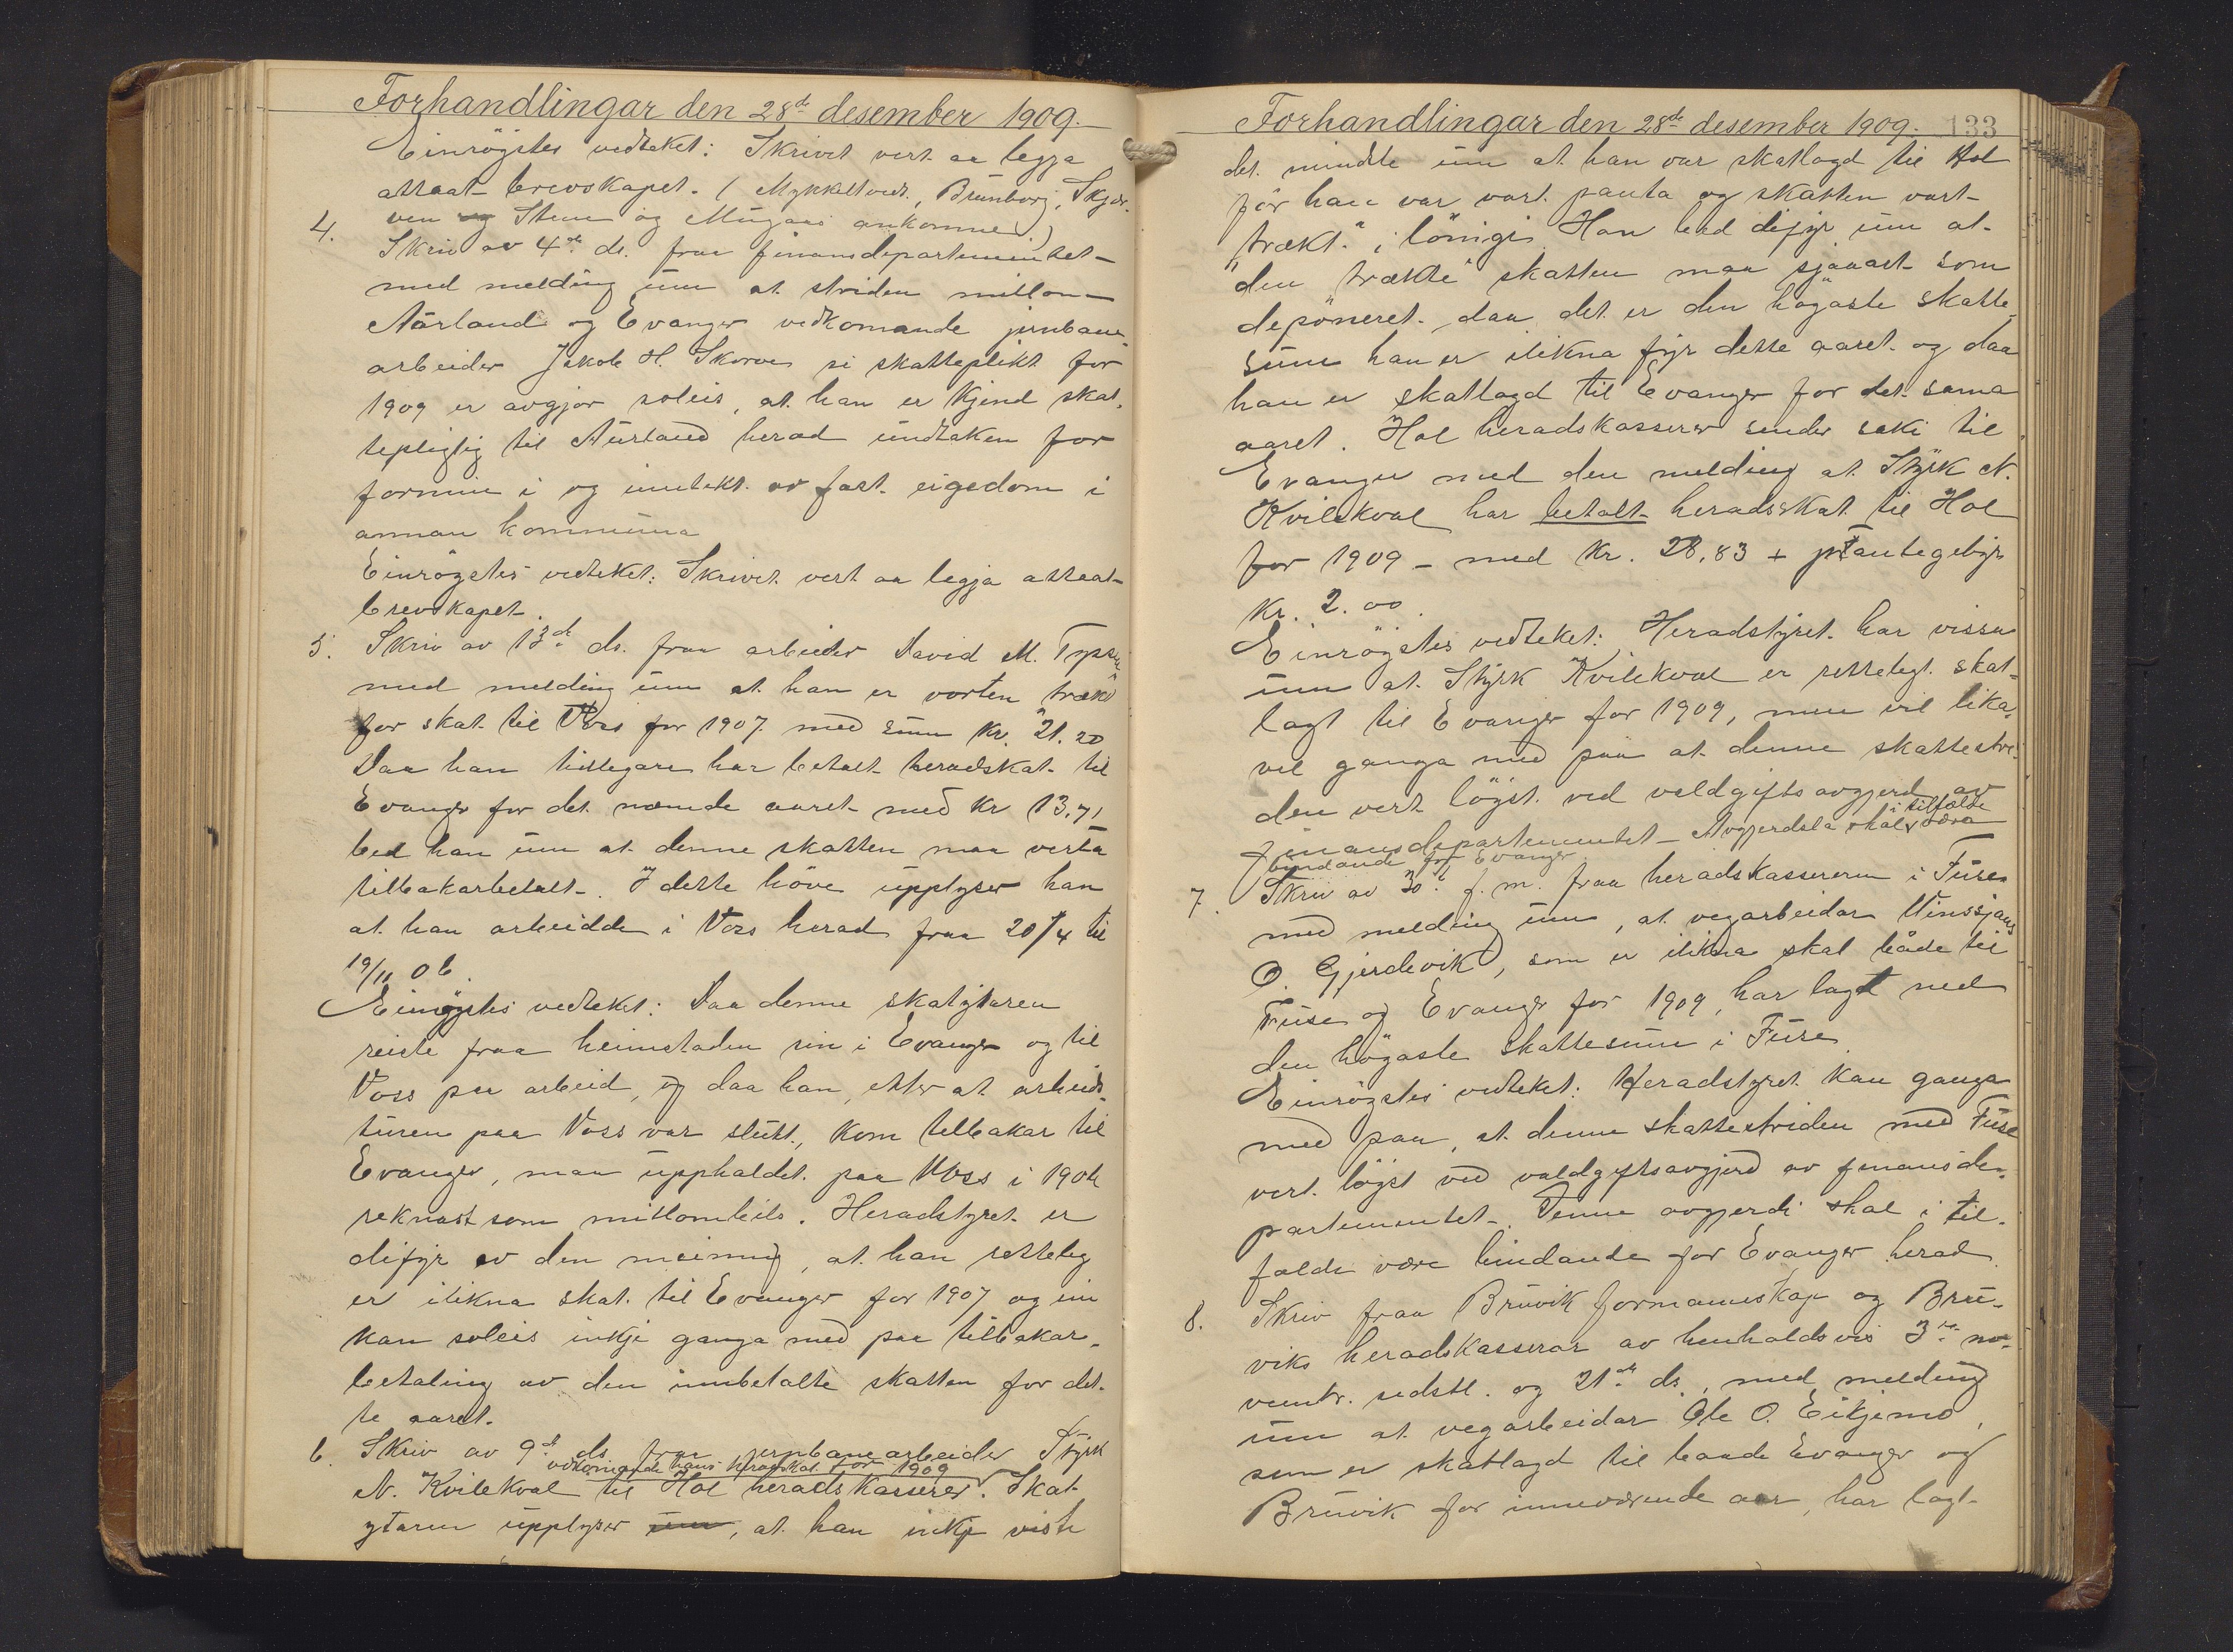 Forhandlingar den 28de desember 1909.
Einrøgstes vedteket: Skrivet vert aa legja
attaat brevskapet. (Mykkeltvedt, Brunborg, Skjer-
ven og Stene og Mugaas ankomne)
4. Skriv av 4de ds. fraa finansdepartementet
med melding um at striden millom
Aurland og Evanger vedkomande jernbane-
arbeider Jakob H. Skorve si skatteplikt for
1909 er avgjor soleis, at han er kjend skat-
tepligtig til Aurland herad undtaken for
formue i og inntekt av fast eigedom i
annan kommuna
Einrøgstes vedteket: Skrivet vert aa legja attaat
brevskapet.
5. Skriv av 13de ds. fraa arbeider David M.
med melding um at han er vorten "trækt"
for skat til Voss for 1907 med sum kr. 21.20
Daa han tidlegare har betalt heradskat til
Evanger for det nemnde aaret med kr 13,71
bed han um at denne skatten maa verta
tilbakarbetalt. I dette høve upplyser han
at han arbeidde i Voss herad fraa 20/4 til
19/11 06.
Einrøgstes vedteket: Daa denne skatytaren
reiste fraa heimstaden sin i Evanger og til
Voss paa arbeid, og daa han, etter at arbeids-
turen paa Voss var slutt, kom tilbakar til
Evanger, maa upphaldet paa Voss i 1906
reknast som millombils. Heradstyret er
difyr av den meining, at han retteleg
er ilikna skat til Evanger for 1907 og ein
kan soleis inkje ganga med paa tilbakar-
betaling av den innbetalte skatten for det-
te aaret.
6. Skriv av 9de ds. fraa jernbanearbeider Styrk
vedkomande hans heradskat for 1909
N. Kvilekval til Hol heradskasserer. Skat-
ytaren upplyser um, at han inkje viste
Forhandlingar den 28de desember 1909. 133
det mindste um at han var skatlagd til Hol
før han var vort panta og skatten vart
"trækt" i løningi. Han bed difyr um at
den "trækte" skatten maa sjaaast som
deponeret, daa det er den høgaste skatte-
sum han er ilikna fyr dette aaret og daa
han er skatlagd til Evanger for det sama
aaret. Hol heradskasserer sender saki til
Evanger med den melding at Styrk N.
Kvilekval har betalt heradsskat til Hol
for 1909 – med kr. 28,83 + pantegebyr
kr. 2.00.
Einrøgstes vedteket: Heradstyret har vissa
um at Styrk Kvilekval er rettelegt skat-
lagt til Evanger for 1909, men vil lika-
vel ganga med paa at denne skattestri-
den vert løgst ved voldgiftsavgjerd av
finansdepartementet – Avgjerdsla skal i tilfælde være
bindande for Evanger
7. Skriv av 30te f. m. fraa heradskassereren i Fuse
med melding um, at vegarbeidar
O. Gjerdevik, som er ilikna skat både til
Fuse og Evanger for 1909, har lagt ned
den høgaste skattesum i Fuse.
Einrøgstes vedteket: Heradstyret kan ganga
med paa, at denne skattestriden med Fuse
vert løgst ved voldgiftsavgjerd av finansde-
partementet. Denne avgjerdi skal i til-
fælde være bindande for Evanger herad.
8. Skriv fraa Bruvik formannskap og Bru-
viks heradskasserar av henholdsvis 3die no-
vembr. sidstl. og 21de ds., med melding
um at vegarbeidar Ole O. Eikjemo,
som er skatlagd til baade Evanger og
Bruvik for inneværende aar, har lagt